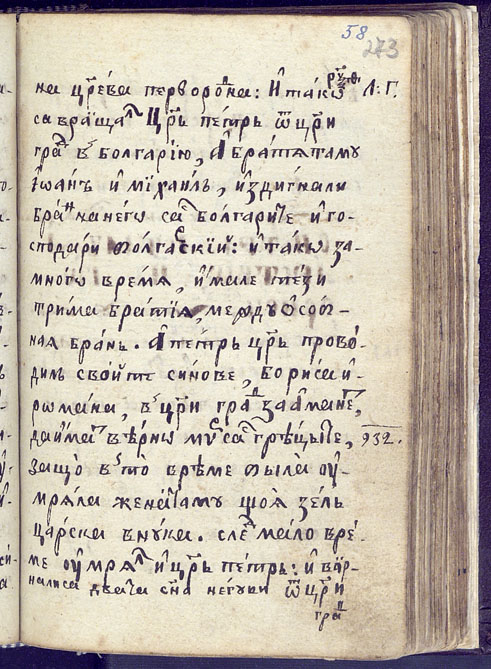 58
273
на цр҃ева первороⷣна: И҆ та́кѡ Л: Г.
са враща́ⷧ Цр҃ь пе́тръ ѿ цр҃и
граⷣ въ болга́рїю, А҆ бра́тїѧ таму
Їѡа́нъ и҆ мїхаи́лъ, и҆здигнали
бра́ⷩ на него са́ болга́рите и҆ го-
спода́ри болга́ⷭскїи: и҆ та́кѡ за
мно́го вре́мѧ, и҆мале те́зи
трима бра́тїѧ, межⷣꙋ ѻ҆соⷠ-
ная бра́нь. А҆ пе́тръ цр҃ь прово́-
дилъ свои́те си́нове, бори́са и҆
рома́на, въ цр҃и граⷣ за а҆мане́ⷮ,
да и҆маⷮ вѣ́рнѡ мꙋ са гре́цыте, 932.
защо̀ въ то̀ вре́ме была оу҆-
мря́ла жена́ таму що́ я зе́лъ
ца́рска внꙋ́ка. слеⷣ ма́ло вре́-
ме оу҆мря́ⷧ и҆ цр҃ь пе́тръ: и҆ ва́р-
налиса два́та сн҃а негуви ѿ цр҃и
граⷣ